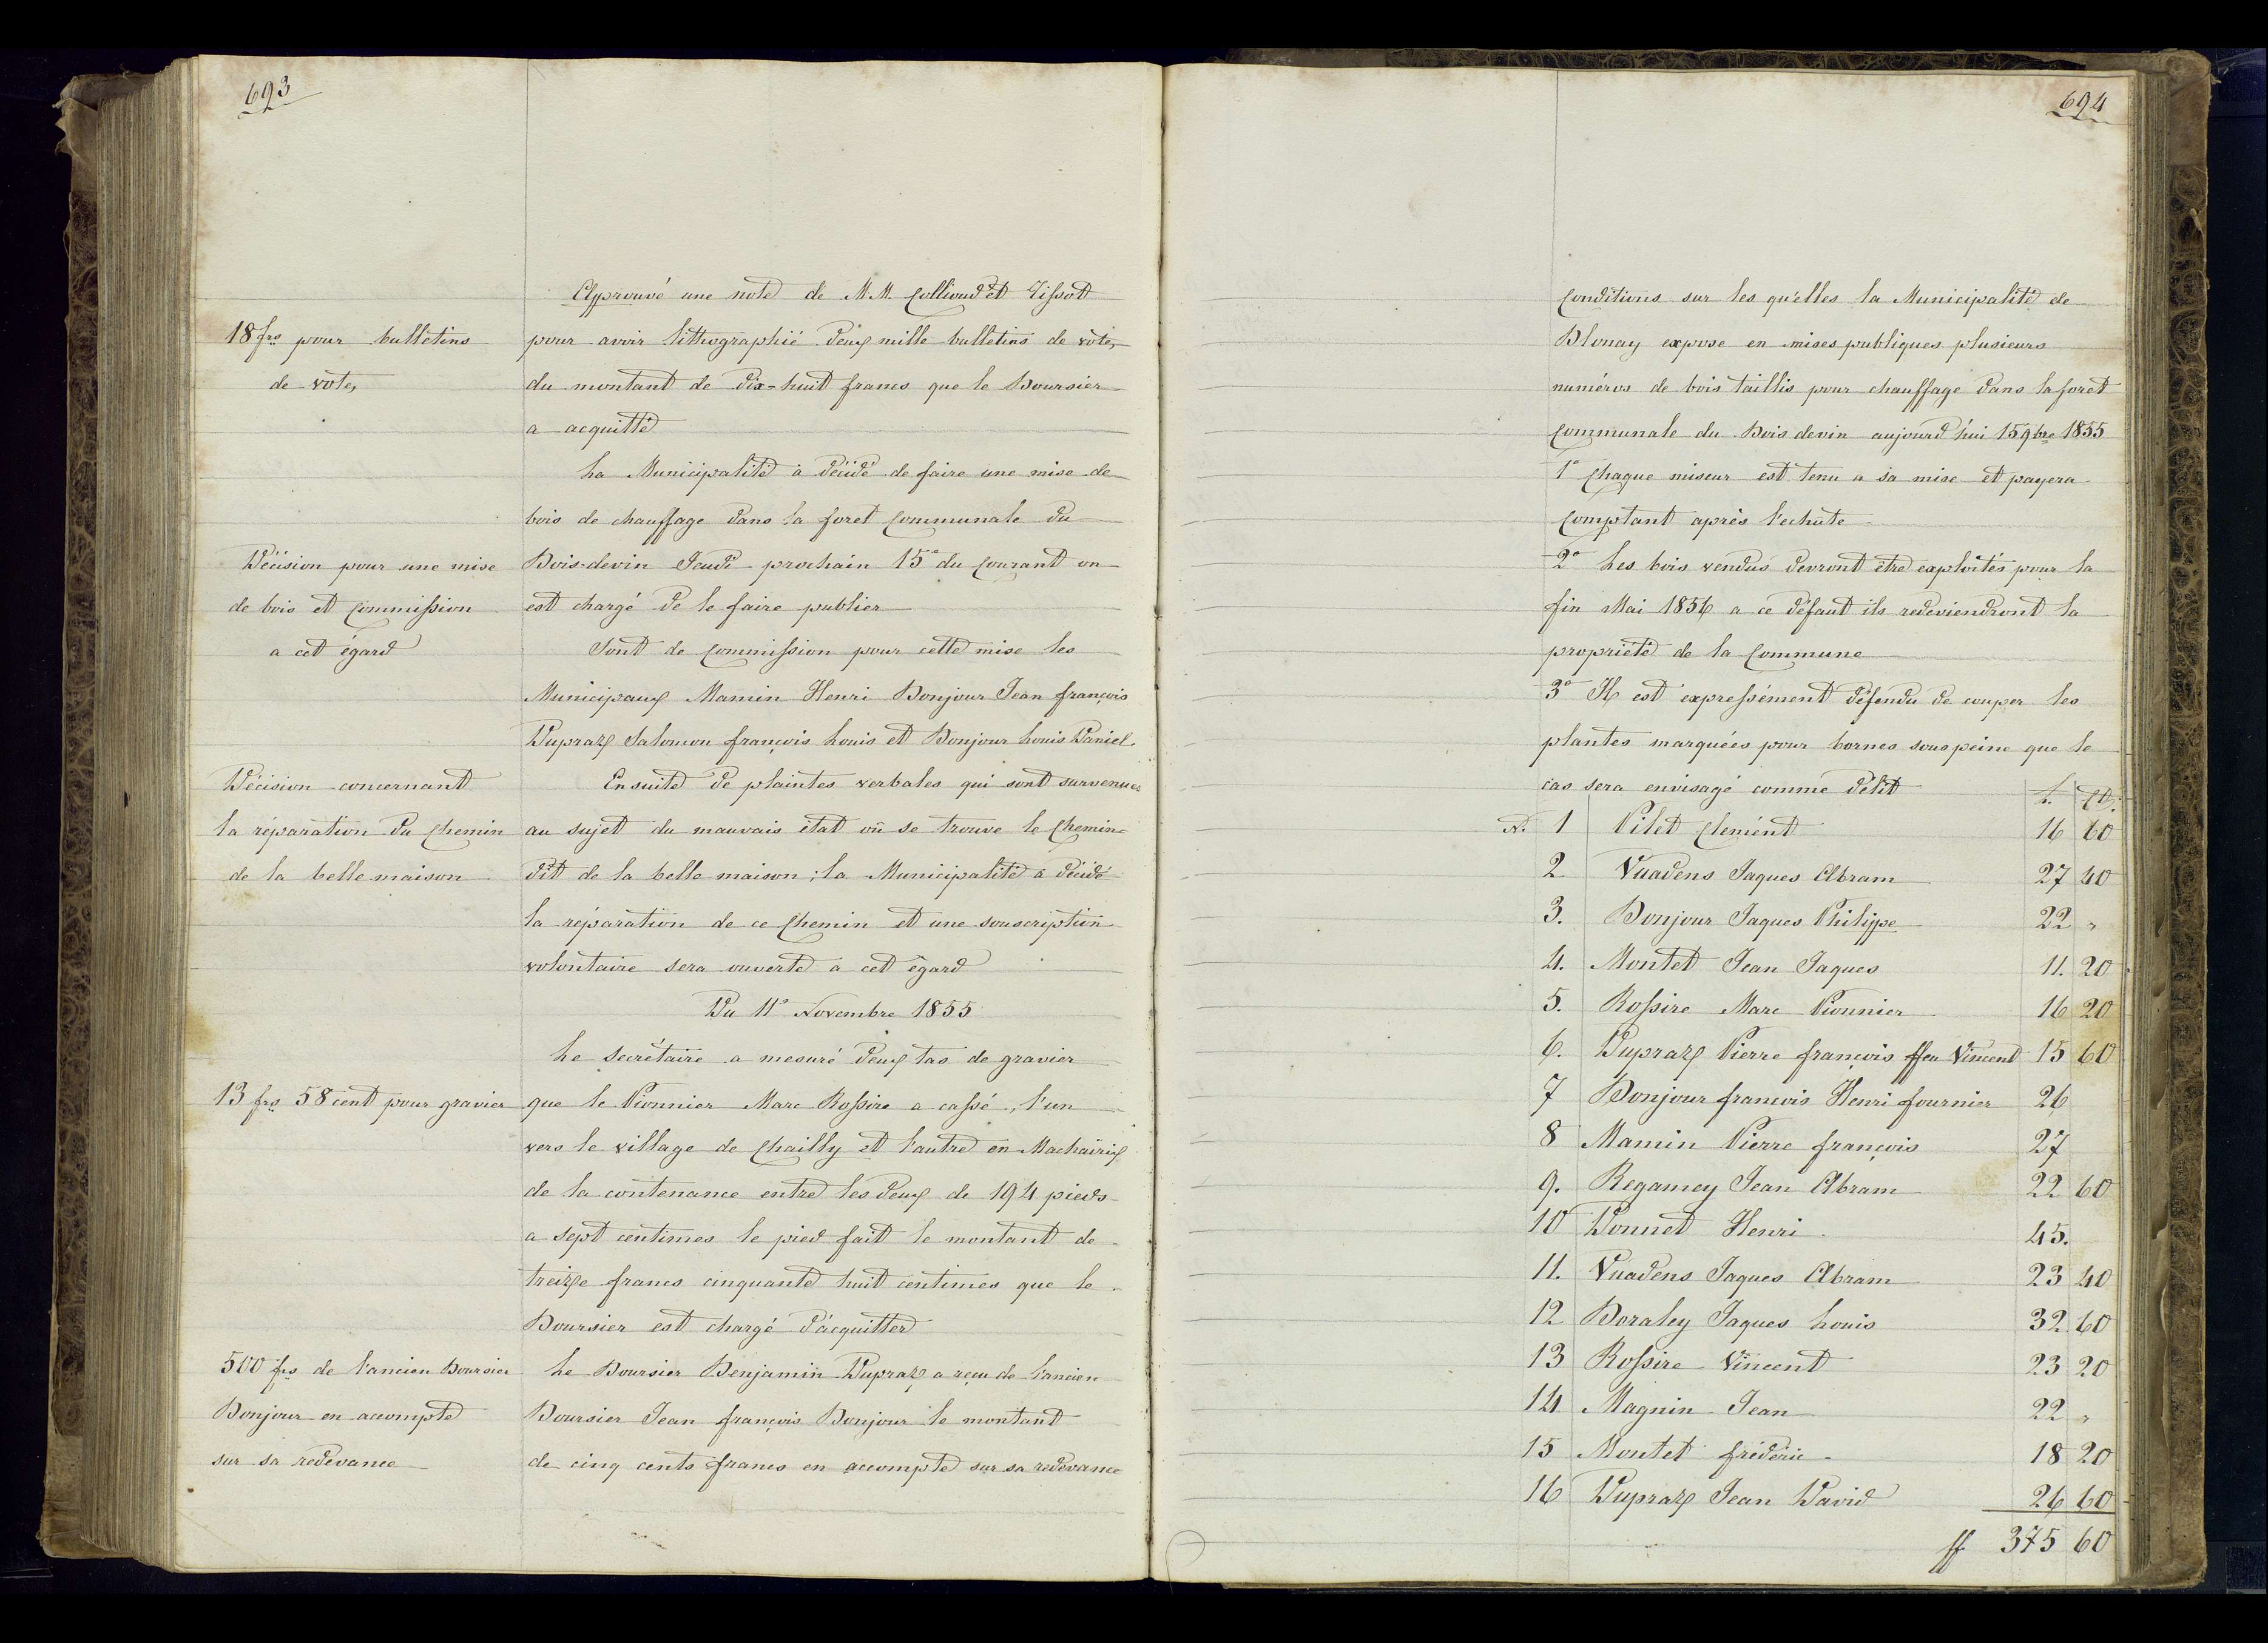 693
Approuvé une note de M.M. Collioud et Tissot
18 frs pour bulletins
de vote,
pour avoir lithographié deux mille bulletins de vote,
du montant de dix-huit francs que le Boursier
a acquitté
La Municipalité à décidé de faire une mise de
bois de chauffage dans la foret Communale du
Décision pour une mise
de bois et Commission
a cet égard
Bois-devin Jeudi prochain 15e du Courant on
est chargé de le faire publier
Sont de Commission pour cette mise les
Municipaux Mamin Henri Bonjour Jean françois
Dupraz Salomon françois Louis et Bonjour Louis Daniel.
Décision concernant
la réparation du Chemin
de la belle maison
Ensuite de plaintes verbales qui sont survenues
au sujet du mauvais état où se trouve le Chemin
dit de la belle maison ; la Municipalité à décidé
la réparation de ce Chemin et une souscription
volontaire sera ouverte à cet égard
Du 11e Novembre 1855
Le secrétaire a mesuré deux tas de gravier
13 frs 58 cent pour gravier
que le Pionnier Marc Rossire a cassé, l'un
vers le village de Chailly et l'autre en
de la contenance entre les deux de 194 pieds
a sept centimes le pied fait le montant de
treize francs cinquante huit centimes que le
Boursier est chargé d'acquitter
500 frs de l'ancien Boursier
Bonjour en acompte
sur sa redevance
Le Boursier Benjamin Dupraz a reçu de l'ancien
Boursier Jean françois Bonjour le montant
de cinq cents francs en acompte sur sa redevance
694
Conditions sur les qu'elles la Municipalité de
Blonay expose en mises publiques plusieurs
numéros de bois taillis pour chauffage dans la foret
Communale du Bois devin aujourd'hui 15 9bre 1855
1o Chaque miseur est tenu a sa mise et payera
Comptant après l'echûte
2o Les bois vendus devront être exploités pour la
fin Mai 1856 a ce défaut ils redeviendront la
propriété de la Commune
3o Il est expressément défendu de couper les
plantes marquées pour bornes sous peine que le
cas sera envisagé comme délit
N. 1 Pilet Clemént 16 60
2 Vuadens Jaques Abram 27 40
3. Bonjour Jaques Philippe 22 "
4. Montet Jean Jaques 11. 20
5. Rossire Marc Pionnier 16 20
6. Dupraz Pierre françois ffeu Vincent 15 60
7 Bonjour francois Henri fournier 26
8 Mamin Pierre françois 27
9. Regamey Jean Abram 22 60
10 Vonnet Henri 45.
11. Vuadens Jaques Abram 23 40
12 Boraley Jaques Louis 32 60
13 Rossire Vincent 23 20
14 Magnin Jean 22 "
15 Montet frédéric 18 20
16 Dupraz Jean David 26 60
ff 375 60